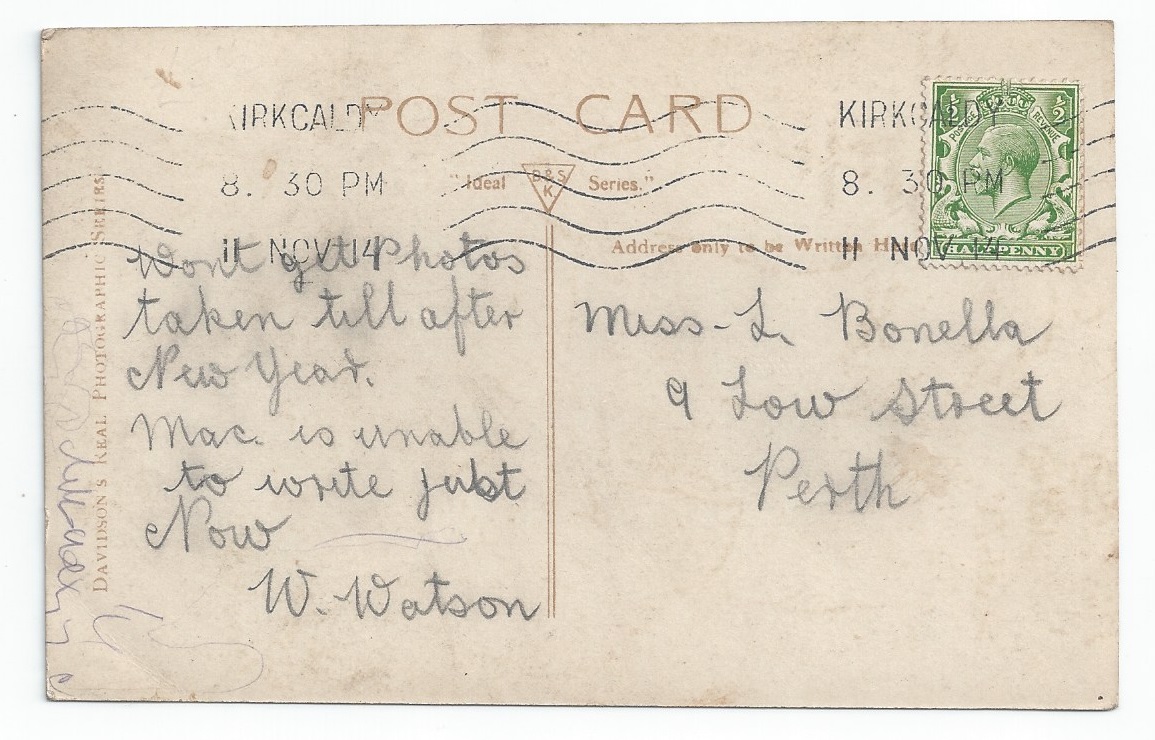 POST CARD
KIRKCALDY
8. 30 PM
11 NOV 14
KIRKCALDY
8. 30 PM
11 NOV 14
½ POSTAGE REVENUE ½
HALFPENNY
"Ideal B & S K Series."
Address only to be Written Here
DAVIDSON'S REAL PHOTOGRAPHIC SERIES
Wont get Photos
taken till after
New Year.
Mac. is unable
to write just
Now
W. Watson
Miss L. Bonella
9 Low Street
Perth